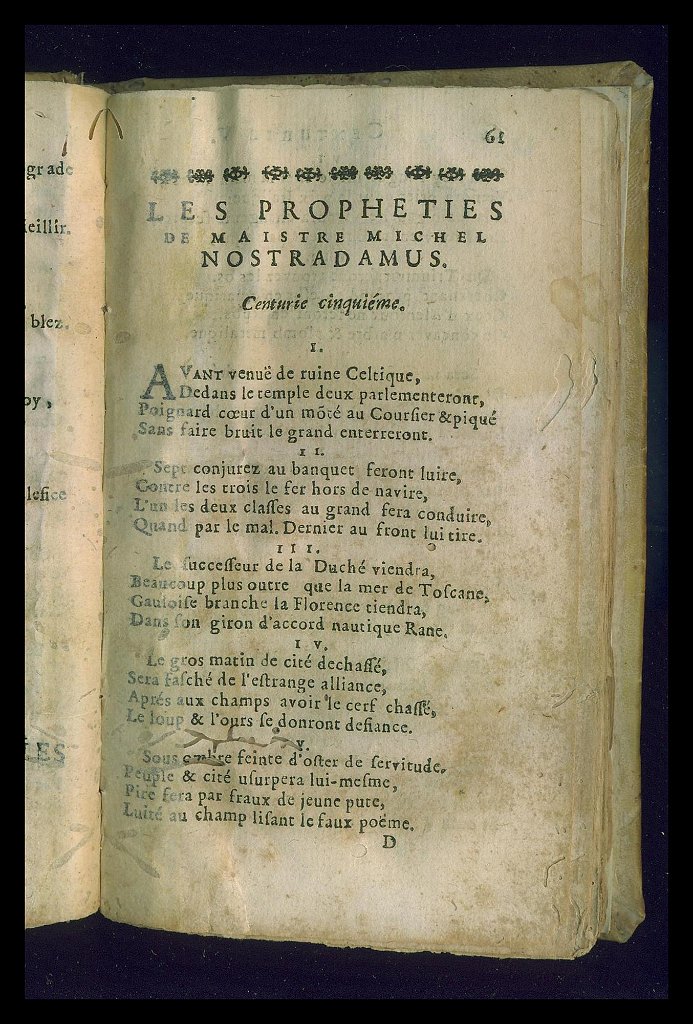 grade
eillir.
blez.
oy,
lefice
LES
61
LES PROPHETIES
DE MAISTRE MICHEL
NOSTRADAMUS.
Centurie cinquiéme.
I.
AVANT venuë de ruine Celtique,
Dedans le temple deux parlementeront,
Poignard cœur d'un môté au Coursier & piqué
Sans faire bruit le grand enterreront.
II.
Sept conjurez au banquet feront luire,
Contre les trois le fer hors de navire,
L'un les deux classes au grand fera conduire,
Quand par le mal. Dernier au front lui tire.
III.
Le successeur de la Duché viendra,
Beaucoup plus outre que la mer de Toscane,
Gauloise branche la Florence tiendra,
Dans son giron d'accord nautique Rane.
IV.
Le gros matin de cité dechassé,
Sera fasché de l'estrange alliance,
Aprés aux champs avoir le cerf chassé,
Le loup & l'ours se donront defiance.
V.
Sous ombre feinte d'oster de servitude,
Peuple & cité usurpera lui-mesme,
Pire fera par fraux de jeune pute,
Luité au champ lisant le faux poëme.
D